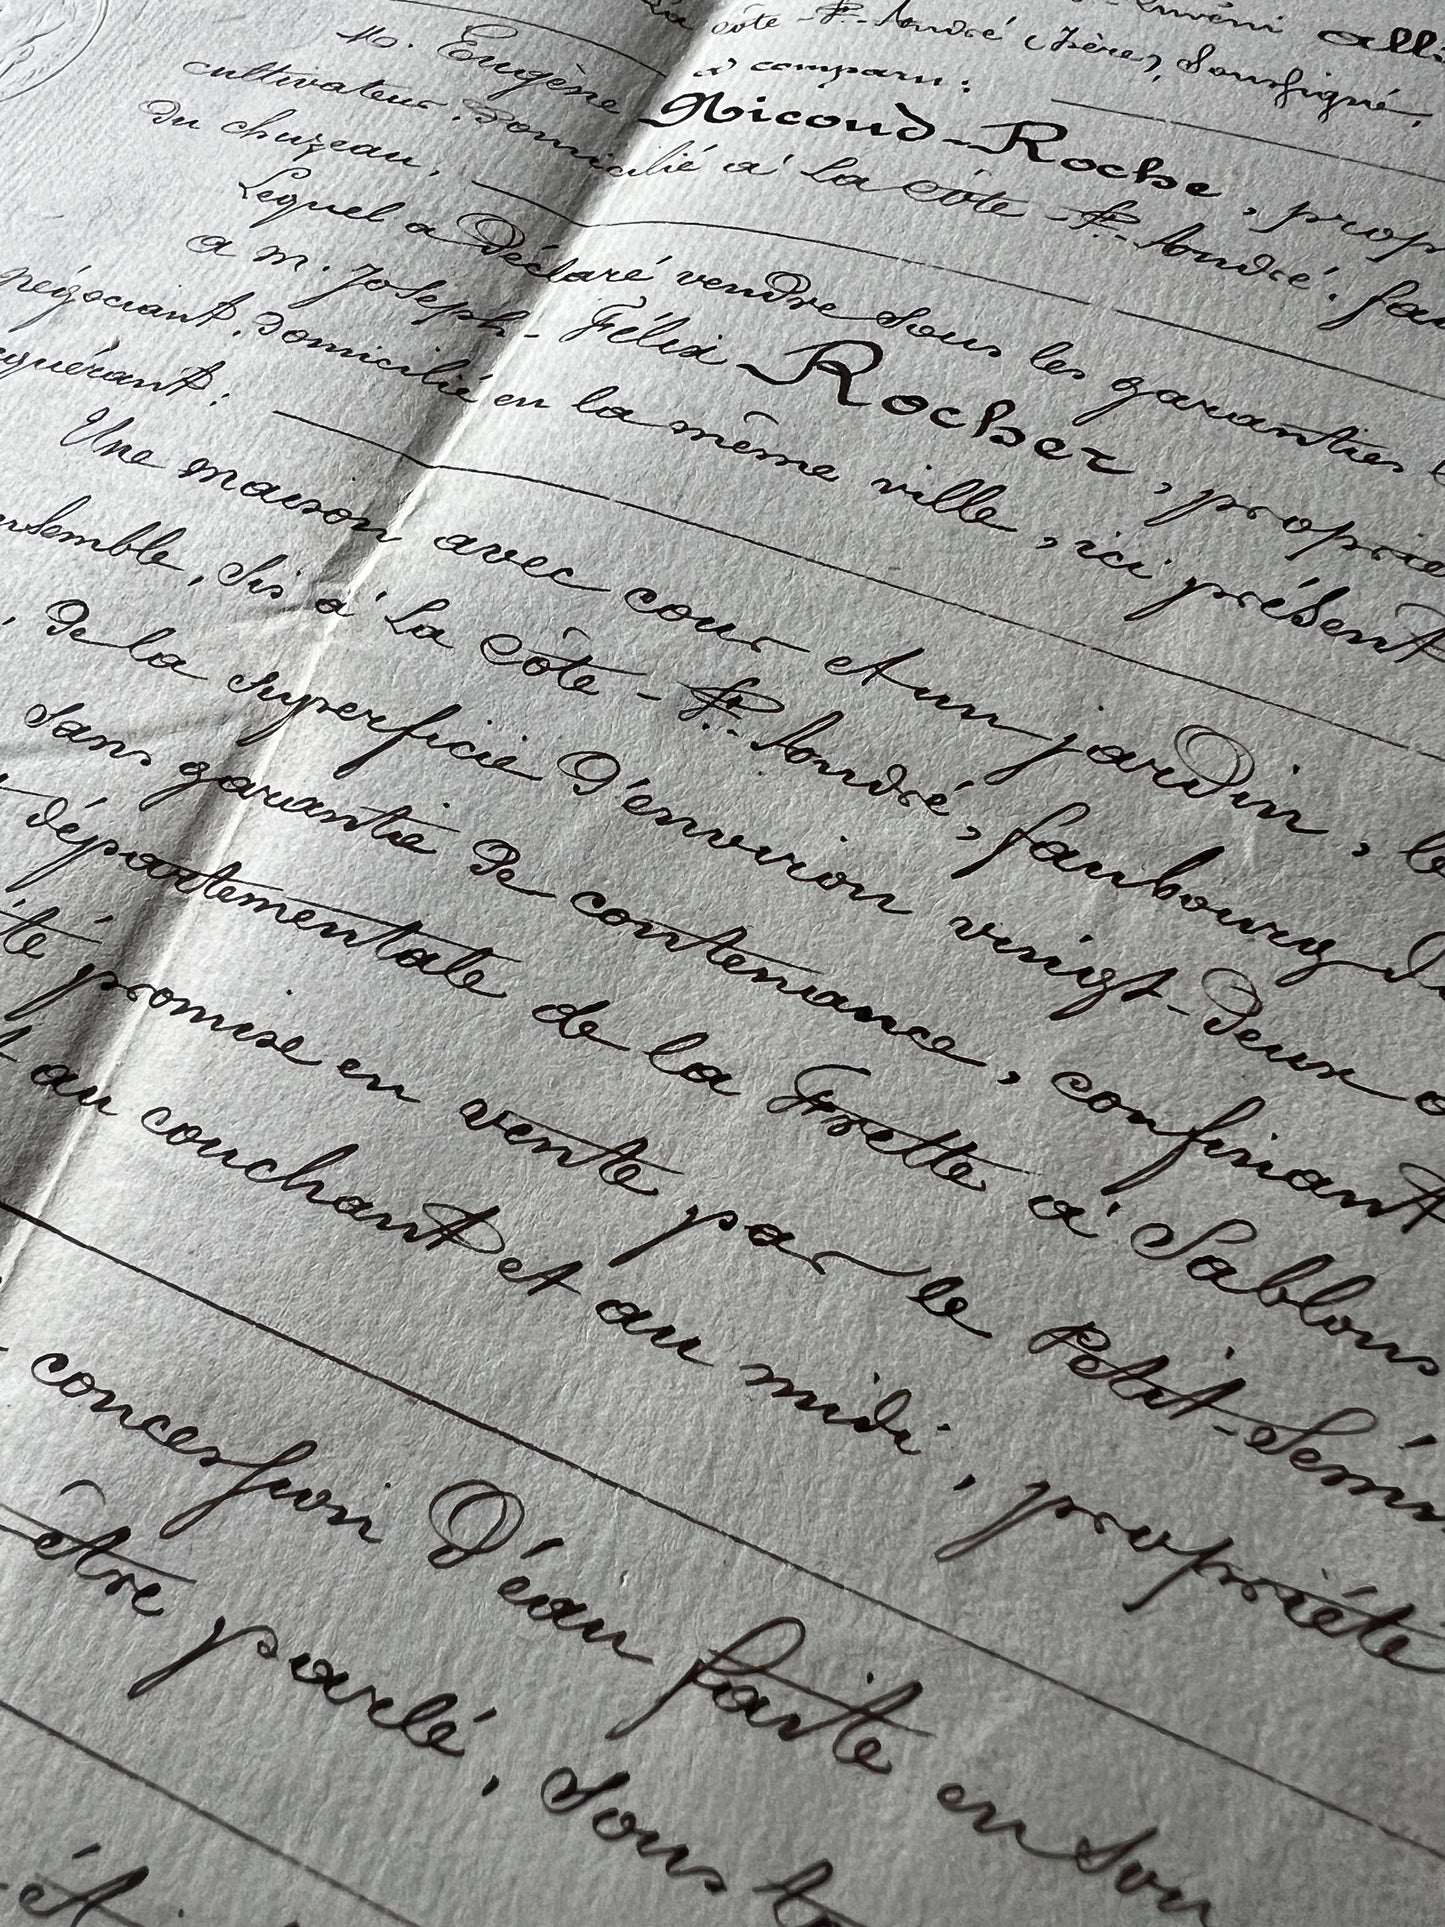 côte-St-André (Isère), soussigné,
a comparu:
M. Eugène Nicoud-Roche, prop
cultivateur, domicilié à La Côte-St-André, fau
du chuzeau,
Lequel a déclaré vendre sous les garanties
a m. Joseph-Félix Rocher, proprié
négociant, domicilié en la même ville, ici présent
cquérant:
Une maison avec cour et un jardin, le
ensemble, sis à La Côte-St-André, faubourg du
de la superficie d'environ vingt-deux a
sans garantie de contenance, confinant
départementale de la Frette à Sablons
té promise en vente par le Petit-Sémi
t au couchant et au midi, propriété
concession d'eau faite en son
être parlé, sous